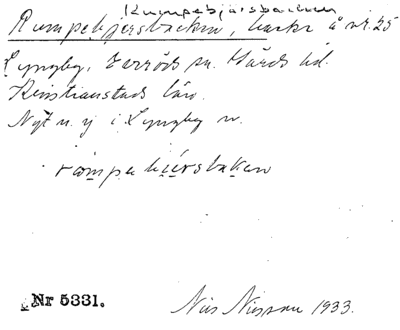 Kumpebjärsbacken
Rumpebjersbacken, backe å nr. 25
Lyngby, Everöds sn. Gärds hd
Kristianstads län.
i Lyngby n.
Nr 5331. Nils Nilsson 1933.